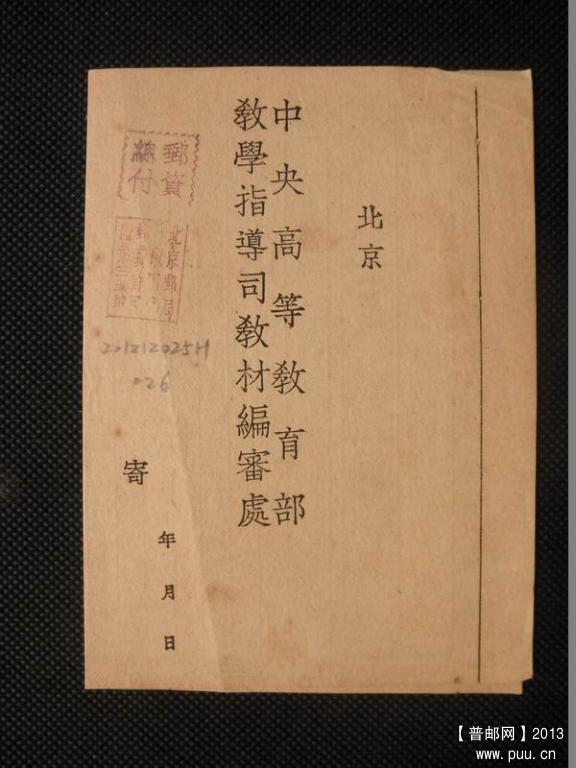 北京
中央高等教育部
教學指導司教材編審處
寄
年月日
郵資
總付
北京郵局
20121202SH
026
【普邮网】2013
www.puu.cn